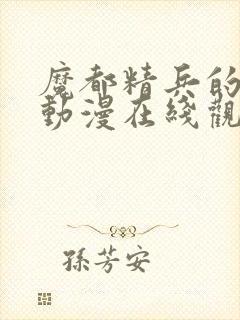 魔都精兵的
動漫在綫觀
孫芳安